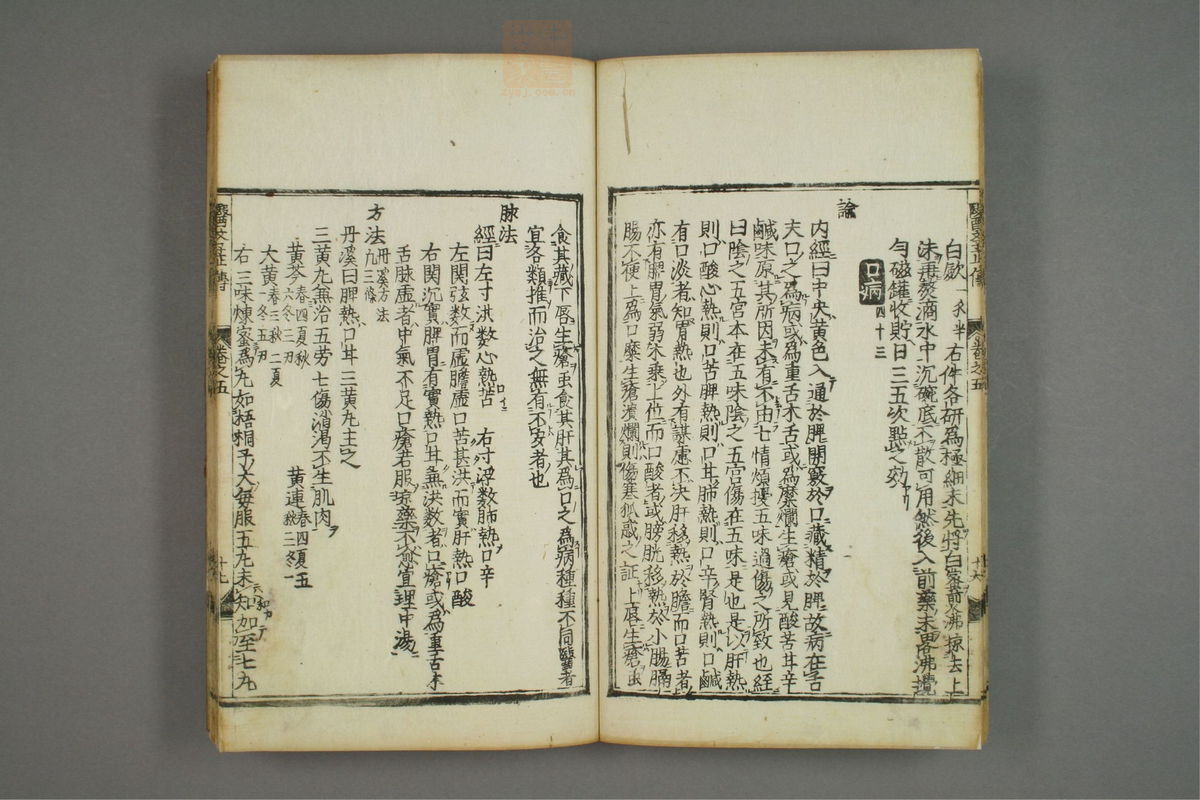 白蜜一𠆤半右件各研爲極細末先將白蜜煎沸掠去上
沫再熬滴水中沉碗底不散可用然後入前藥末畧沸攪
勻磁罐收貯日三五次點之効
口病四十三
論
內經曰中央黃色入通於脾開竅於口藏精於脾故病在舌
夫口之爲病或爲重舌木舌或爲糜爛生瘡或見酸苦甘辛
鹹味原其所因未有不由七情煩擾五味過傷之所致也經
曰陰之五宮本在五味陰之五宮傷在五味是也是以肝熱
則口酸心熱則口苦脾熱則口甘肺熱則口辛腎熱則口鹹
有口淡者知胃熱也外有謀慮不决肝移熱於膽而口苦者
亦有脾胃氣弱木乘上位而口酸者或膀胱移熱於小腸膈
腸不便上爲口糜生瘡潰爛則傷寒狐惑之証上唇生瘡虫
食其藏下唇生瘡虫食其肝其爲口之爲病種種不同醫者
宜各類推而治之無有不安者也
脉法
經曰左寸洪數心熱苦　右寸浮數肺熱口辛
左関弦數而虛膽虛口苦甚洪而實肝熱口酸
右関沉實脾胃有實熱口甘兼洪数者口瘡或爲重舌木
舌脉虛者中氣不足口瘡若服凉藥不愈宜理中湯
方法丹溪方法九三條
丹溪曰脾熱口甘三黃丸主之
三黃丸兼治五劳七傷消渴不生肌肉
黃芩春四夏秋六冬三刃　黃連春四夏五秋三冬一
大黃春三秋二夏一冬五刃
右三味煉蜜爲丸如梧桐子大每服五丸未知加至七丸
醫學正傳　卷之五　十六
醫學正傳　卷之五　十七